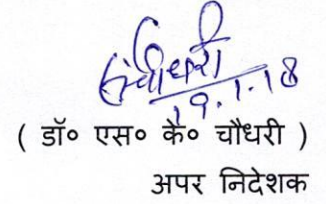 चौधरी
19.1.18
( डॉ० एस० कै० चौधरी )
अपर निदेशक